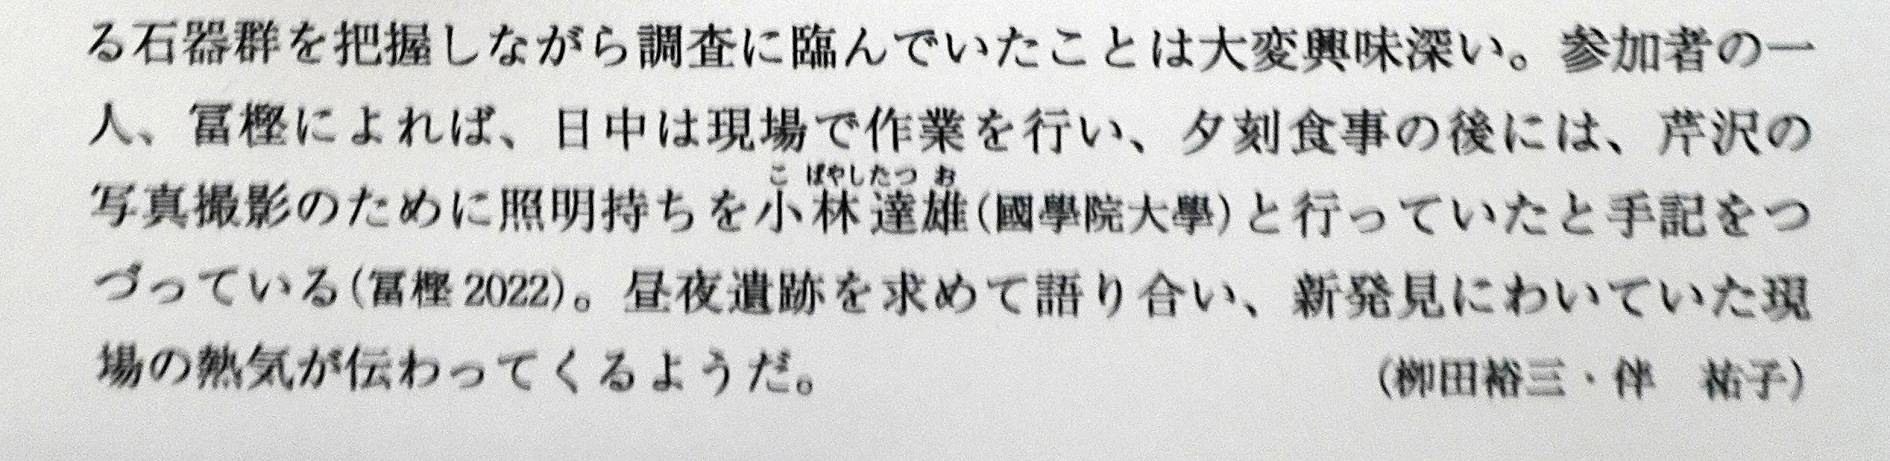 る石器群を把握しながら調査に臨んでいたことは大変興味深い。参加者の一
人、冨樫によれば、日中は現場で作業を行い、夕刻食事の後には、芹沢の
こ ばやしたつ お
写真撮影のために照明持ちを小林達雄(國學院大學)と行っていたと手記をつ
づっている(冨樫2022)。昼夜遺跡を求めて語り合い、新発見にわいていた現
場の熱気が伝わってくるようだ。
(柳田裕三・伴　祐子)